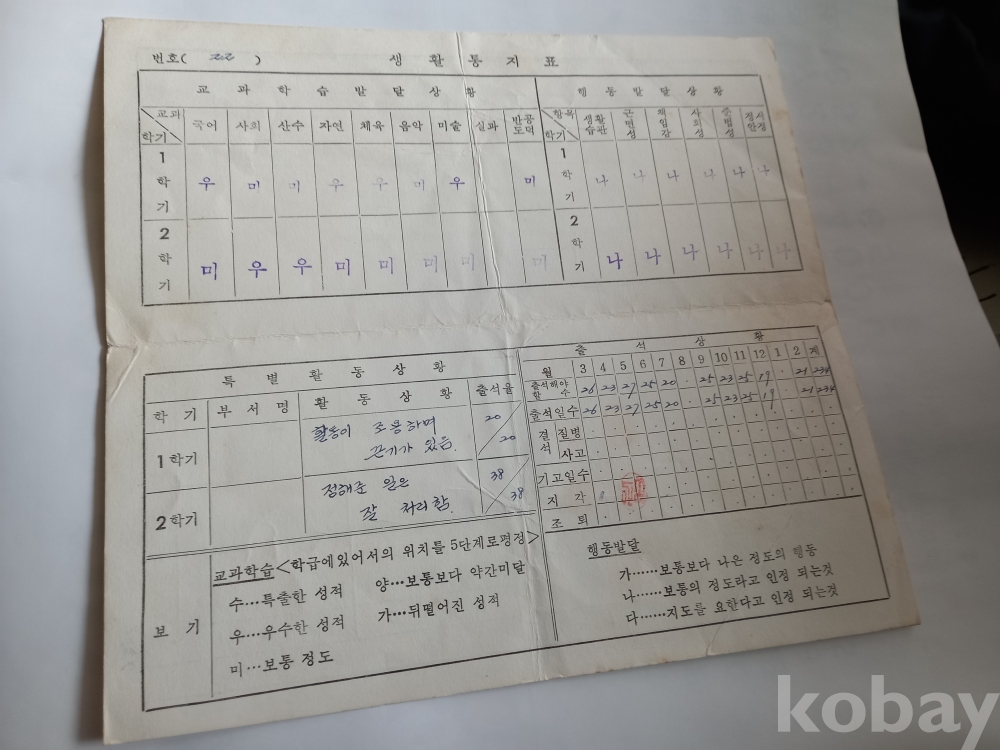 번호( 22 ) 생 활 통 지 표
교 과 학 습 발 달 상 황
교과 학기 국어 사회 산수 자연 체육 음악 미술 실과 반공도덕
1학기 우 미 미 우 우 미 우 미
2학기 미 우 우 미 미 미 미 미
행 동 발 달 상 황
항목 학기 생활습관 근면성 책임감 사회성 준법성 정서안정
1학기 나 나 나 나 나 나
2학기 나 나 나 나 나 나
특 별 활 동 상 황
학 기 부 서 명 활 동 상 황 출석율
1학기 활동이 조용하며 끈기가 있음. 20/20
2학기 정해준 일은 잘 처리함. 38/38
출 석 상 황
월 3 4 5 6 7 8 9 10 11 12 1 2 계
출석해야할 수 26 23 27 25 20 · 25 23 25 19 · 21 234
출석일수 26 23 27 25 20 · 25 23 25 19 · 21 234
결석 질병
사고
기고일수
지 각
조 퇴
보 기
교과학습<학급에있어서의 위치를 5단계로평정>
수…특출한 성적 양…보통보다 약간미달
우…우수한 성적 가…뒤떨어진 성적
미…보통 정도
행동발달
가……보통보다 나은 정도의 행동
나……보통의 정도라고 인정 되는것
다……지도를 요한다고 인정 되는것
kobay